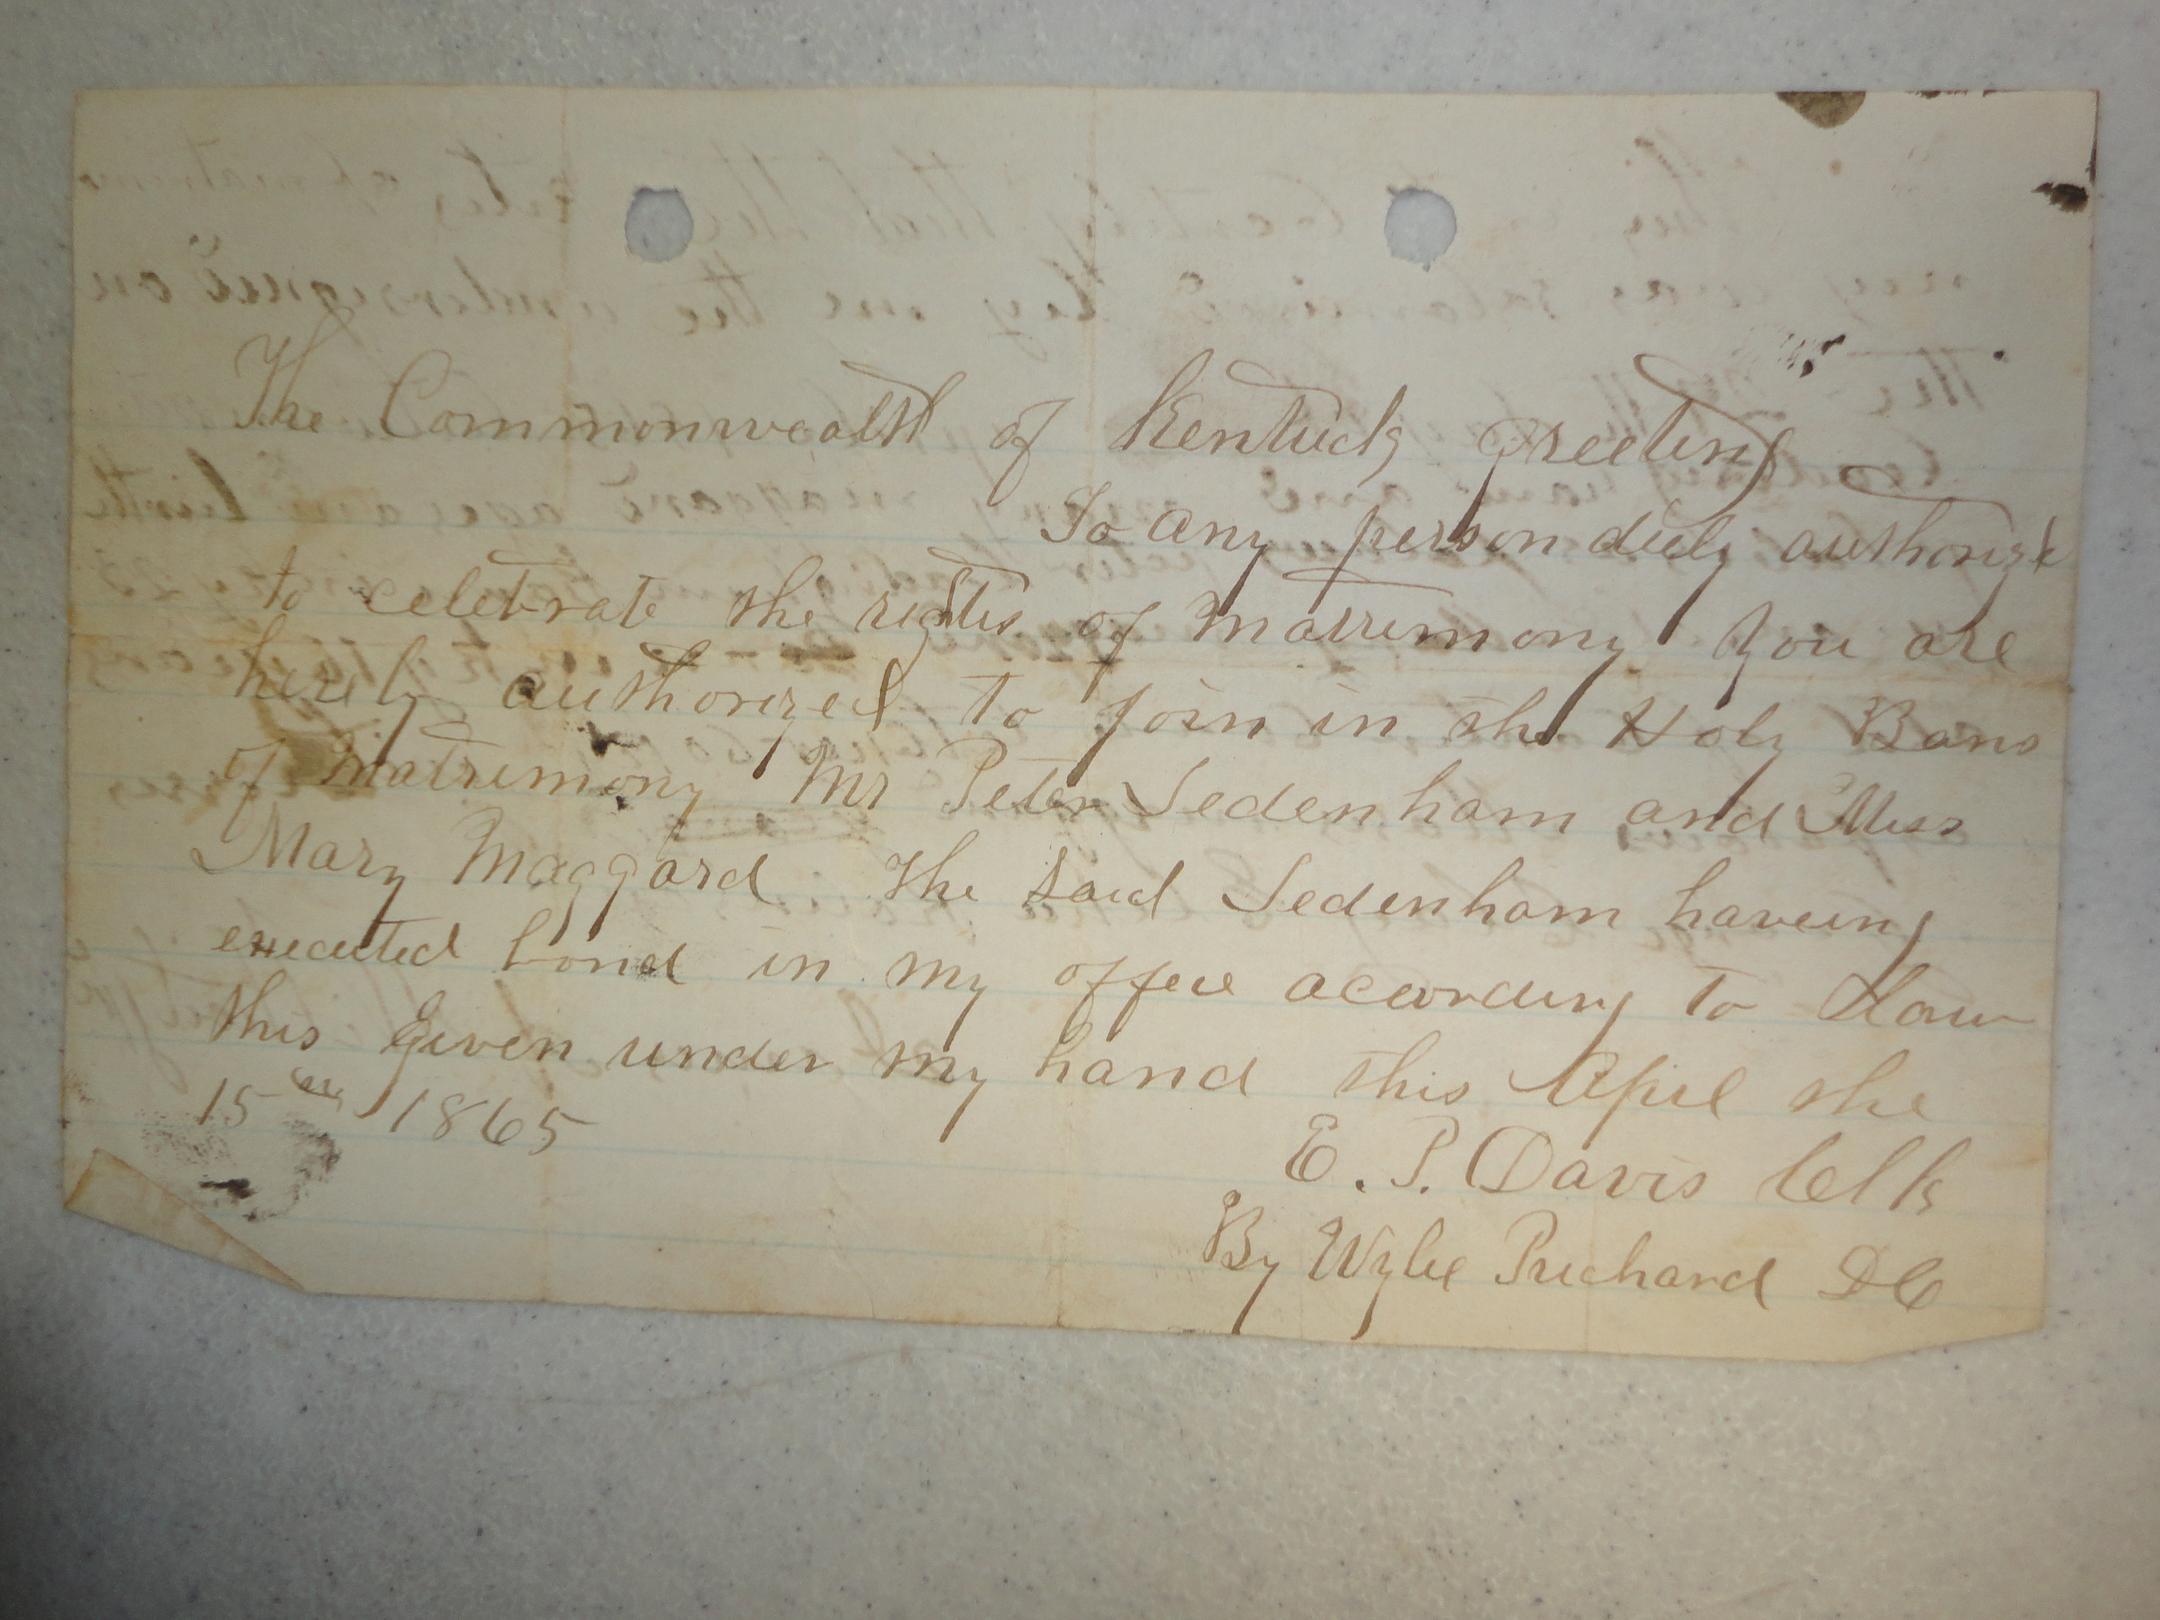 The Commonwealth of Kentucky Greeting
To any person duly authorized
to celebrate the rights of Matrimony You are
hereby authorized to join in the Holy Bans
of Matrimony Mr Peter Sedenham and Miss
Mary Maggard. The said Sedenham haveing
executed bond in my office according to Law
this Given under my hand this April the
15 1865
E. P. Davis Clk
By Wylie Prichard DC